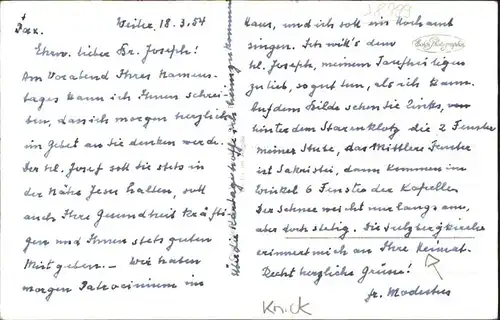 +
Pax. Weiler, 18.3.54
Ehrw. lieber Br. Joseph!
Am Vorabend Ihres Namens-
tages kann ich Ihnen schrei-
ben, dass ich morgen herzlich
im Gebet an sie denken werde.
Der hl. Josef soll sie stets in
der Nähe Jesu halten, soll
auch Ihre Gesundheit kräfti-
gen und Ihnen stets guten
Mut geben. — Wir haben
morgen Patrocinium im
Haus, und ich soll ein Hochamt
singen. Ich will's dem
hl. Joseph, meinem Taufheiligen
zu lieb, so gut tun, als ich kann.
Auf dem Bilde sehen Sie links, von
hinter dem Starenklotz die 2 Fenster
meiner Stube, das Mittlere Fenster
ist Sakristei, dann kommen im
Winkel 6 Fenster der Kapelle.
Der Schnee weicht nur langsam,
aber doch stetig. Die Sulzbergkirche
erinnert mich an Ihre Heimat.
Recht herzliche Grüsse!
fr. Modestus
Knick